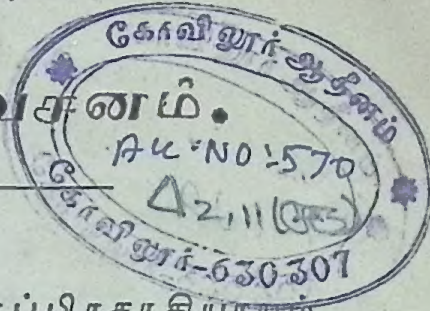 கோவிலூர்-ஆதீனம்
வசனம்.
AC-NO:570
Δ2,11
கோவிலூர்-630 307